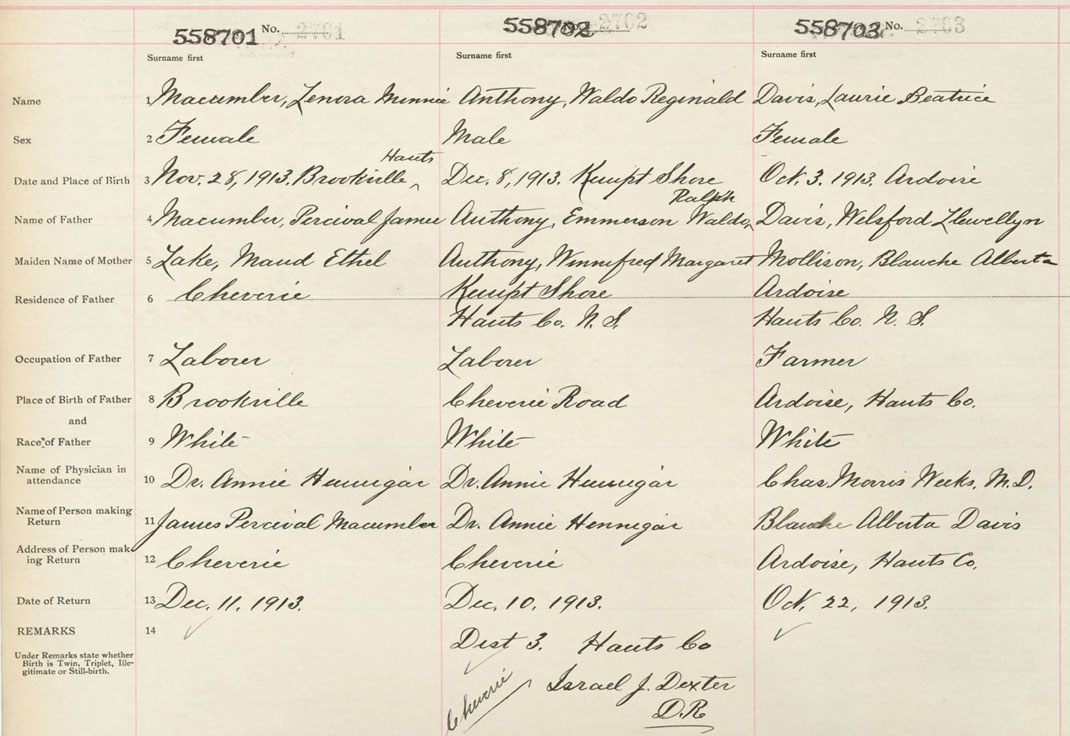 558701 No. 2701 558702 No. 2702 558703 No. 2703
Surname first Surname first Surname first
Name 1 Macumber, Lenora Minnie Anthony, Waldo Reginald Davis, Laurie Beatrice
Sex 2 Female Male Female
Hants
Date and Place of Birth 3 Nov. 28, 1913. Brookville ‸ Dec. 8, 1913. Kempt Shore Oct. 3. 1913. Ardoise
Ralph
Name of Father 4 Macumber, Percival James Anthony, Emmerson Waldo, Davis, Welsford Llewellyn
Maiden Name of Mother 5 Lake, Maud Ethel Anthony, Winnifred Margaret Mollison, Blanche Alberta
Residence of Father 6 Cheverie Kempt Shore Ardoise
Hants Co. N. S. Hants Co. N. S.
Occupation of Father 7 Laborer Laborer Farmer
Place of Birth of Father 8 Brookville Cheverie Road Ardoise, Hants Co.
and
Race of Father 9 White White White
Name of Physician in
attendance 10 Dr. Annie Hennigar Dr. Annie Hennigar Chas. Morris Weeks, M. D.
Name of Person making
Return 11 James Percival Macumber Dr. Annie Hennigar Blanche Alberta Davis
Address of Person mak-
ing Return 12 Cheverie Cheverie Ardoise, Hants Co.
Date of Return 13 Dec. 11. 1913. Dec. 10. 1913. Oct. 22, 1913.
REMARKS 14
Dist 3. Hants Co
Under Remarks state whether
Birth is Twin, Triplet, Ille-
gitimate or Still-birth.
Cheverie Israel J. Dexter
D.R